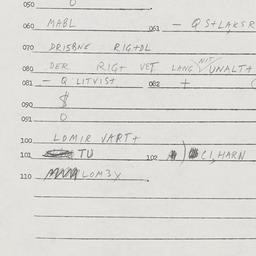 050 0
060 MABL 061 - QStLAKSR
070 DRISBNE RIG+DL
080 DER RIG+ VET LANG NIT UNALT+
081 - Q LITVIS+ 082 +
090 $
091 0
100 LOMIR VART+
101 TU 102 ) CI, HARN
110 LOM3Y